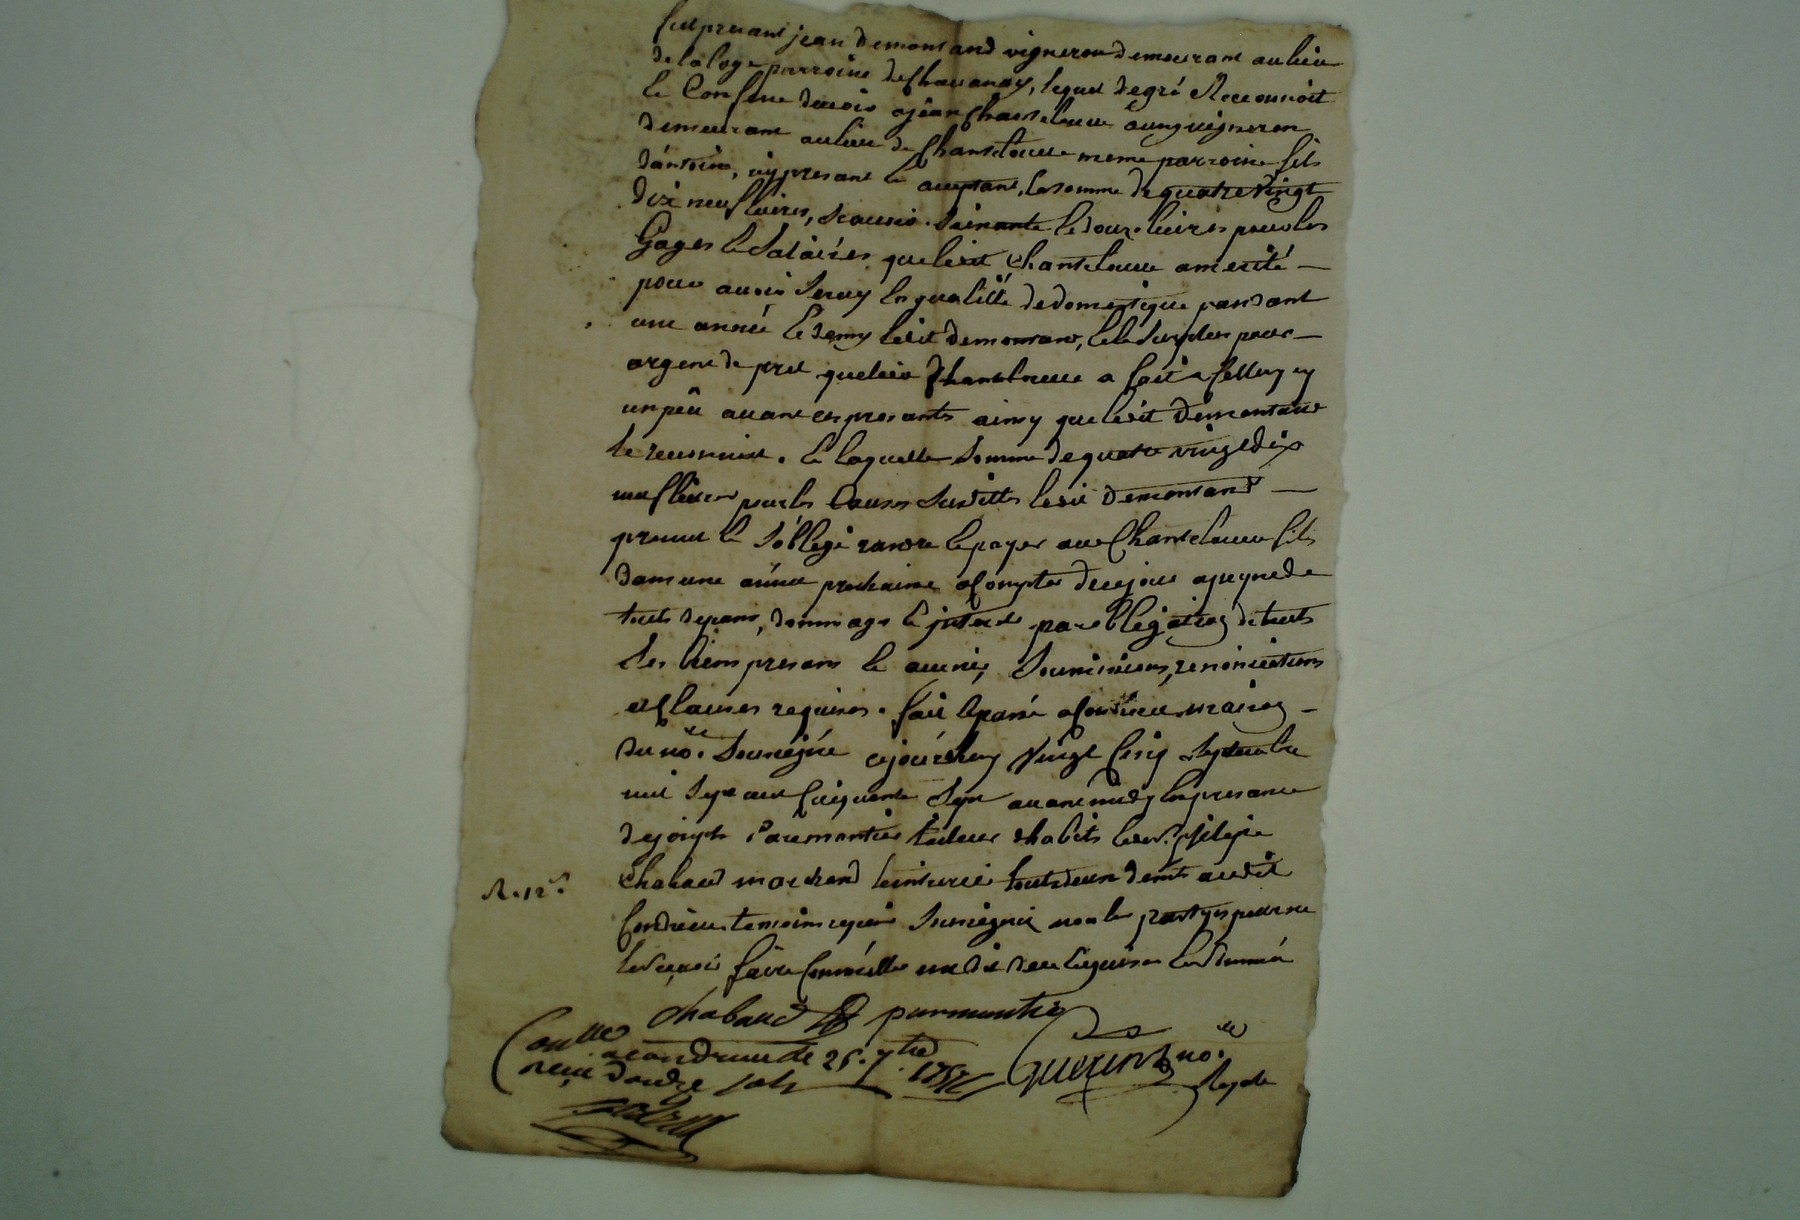 fut present jean demontand vigneron demeurant au lieu
de la loge parroisse de Chavanay, lequel de gré Reconnoit
et Confesse devoir a jean Chanteloube aussy vigneron
demeurant au lieu de Chanteloube meme parroisse fils
d'antoine, icy present et acceptant, la somme de quatre vingt
dix neuf livres, scavoir. soixante et douze livres pour les
Gages et salaires que ledit Chanteloube a merité
pour avoir servy en qualitté de domestique pandant
une année et demy ledit demontand, et le surplus pour
argent de pret que ledit Chanteloube a fait a celluy cy
un peu avant ces presantes ainsy que ledit demontand
le reconnoit. et laquelle somme de quatre vingt dix
neuf livres pour les Causes susdittes ledit demontand
promet et s'obblige randre et payer au Chanteloube fils
dans une année prochaine a Compter de ce jour a peyne de
touts depans, dommage et interets par obbligation de touts
ses biens presans et avenir, soumissions, renonciations
et Clauses requises. fait et passé a Condrieu maison
du no.re soussigné cejourd'huy vingt Cinq septembre
mil sept cent Cinquante sept avant midy en presance
de joseph Parmantier tailleur d'habits et
Chabaud marchand touts deux dem.ts audit
Condrieu temoins requis soussignés non les partyes pour ne
le scavoir faire Comm'elles ont dit de ce enquises et sommées
chabaud parmantier
R. 12 s.
Con.llé a Condrieu le 26. 7bre 1757
reçu douze sols
Guerin no.re
Royal